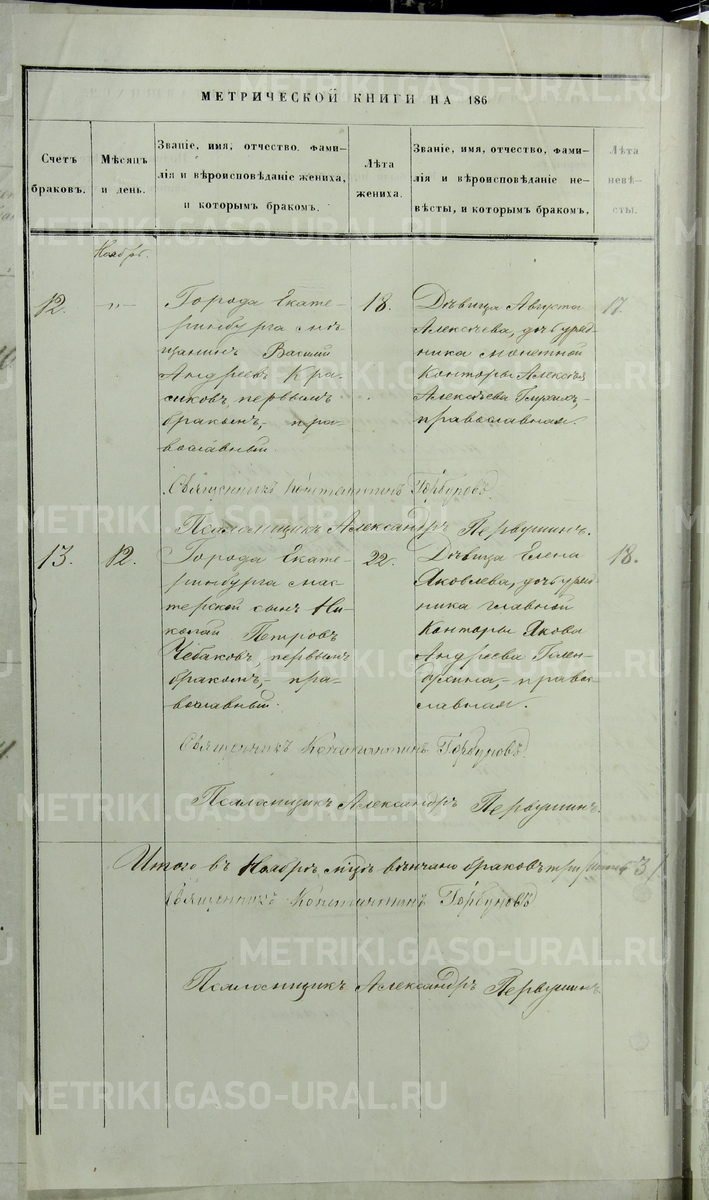 МЕТРИЧЕСКОЙ КНИГИ НА 186
Счетъ
браковъ.
Мѣсяцъ
и день.
Званіе, имя, отчество, фами-
лія и вѣроисповѣданіе жениха,
и которымъ бракомъ.
Лѣта
жениха.
Званіе, имя, отчество, фами-
лія и вѣроисповѣданіе не-
вѣсты, и которымъ бракомъ.
Лѣта
невѣ-
сты.
Ноябрь.
12.
—"—
Города Екате-
ринбурга мѣ-
щанинъ Василий
Андреевъ Кра-
сиковъ, первымъ
бракомъ, - пра-
вославный
18.
Дѣвица Августа
Алексѣева, дочь уряд-
ника монетной
Конторы Алексѣя
Алексѣева
православная.
17.
Священникъ Константинъ Горбуновъ
Псаломщикъ Александръ Первушинъ.
13.
12.
Города Екате-
ринбурга мас-
терской сынъ Ни-
колай Петровъ
Чебаковъ, первымъ
бракомъ, - пра-
вославный.
22.
Дѣвица Елена
Яковлева, дочь уряд-
ника главной
Конторы Якова
Андреева
православная.
18.
Священникъ Константинъ Горбуновъ
Псаломщикъ Александръ Первушинъ.
Итого въ Ноябрѣ м-цѣ вѣнчано браковъ три 3
Священникъ Константинъ Горбуновъ
Псаломщикъ Александръ Первушинъ.
METRIKI.GASO-URAL.RU